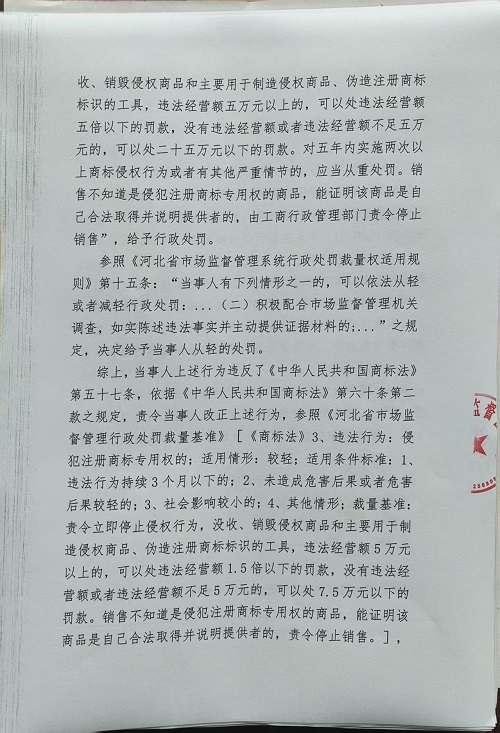 收、销毁侵权商品和主要用于制造侵权商品、伪造注册商标
标识的工具，违法经营额五万元以上的，可以处违法经营额
五倍以下的罚款，没有违法经营额或者违法经营额不足五万
元的，可以处二十五万元以下的罚款。对五年内实施两次以
上商标侵权行为或者有其他严重情节的，应当从重处罚。销
售不知道是侵犯注册商标专用权的商品，能证明该商品是自
己合法取得并说明提供者的，由工商行政管理部门责令停止
销售”，给予行政处罚。
参照《河北省市场监督管理系统行政处罚裁量权适用规
则》第十五条：“当事人有下列情形之一的，可以依法从轻
或者减轻行政处罚：...（二）积极配合市场监督管理机关
调查，如实陈述违法事实并主动提供证据材料的;...”之规
定，决定给予当事人从轻的处罚。
综上，当事人上述行为违反了《中华人民共和国商标法》
第五十七条，依据《中华人民共和国商标法》第六十条第二
款之规定，责令当事人改正上述行为，参照《河北省市场监
督管理行政处罚裁量基准》［《商标法》3、违法行为：侵
犯注册商标专用权的；适用情形：较轻；适用条件标准：1、
违法行为持续3个月以下的；2、未造成危害后果或者危害
后果较轻的；3、社会影响较小的；4、其他情形；裁量基准：
责令立即停止侵权行为，没收、销毁侵权商品和主要用于制
造侵权商品、伪造注册商标标识的工具，违法经营额5万元
以上的，可以处违法经营额1.5倍以下的罚款，没有违法经
营额或者违法经营额不足5万元的，可以处7.5万元以下的
罚款。销售不知道是侵犯注册商标专用权的商品，能证明该
商品是自己合法取得并说明提供者的，责令停止销售。］，
督